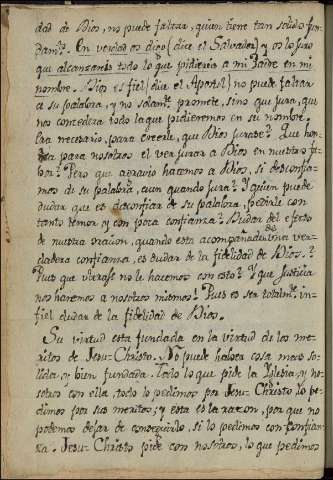 dad de Dios, no puede faltar, quien tiene tan solido fun-
damto. En verdad os digo (dice el Salvador) y os lo juro
qui alcanzareis todo lo que pidiereis a mi Padre en mi
nombre. Dios es fiel (dice el Apostl) no puede faltar
a su palabra, y no solamte promete, sino que jura, que
nos concedera todo lo que pidieremos en su nombre.
Era necesario, para creerle, que Dios jurase? Que hon-
ra para nosotros el ver jurar a Dios en nuestro fa-
bor? Pero que agravio hacemos a Dios, si desconfia-
mos de su palabra, aun quando jura? Y quien puede
dudar que es desconfiar de su palabra, pedirle con
tanto temor, y con poca confianza? Dudar del efecto
de nuestra oracion, quando esta acompañada de una ver-
dadera confianza, es dudar de la fidelidad de Dios.
Pues que ultraje no le hacemos con esto? Y que Justicia
nos haremos a nosotros mismos? Pues es ser totalmte in-
fiel dudar de la fidelidad de Dios.
Su virtud esta fundada en la virtud de los me-
ritos de Jesu-Christo. No puede haber cosa mas so-
lida, y bien fundada. Todo lo que pide la Iglesia, y no-
sotros con ella, todo lo pedimos por Jesu-Christo lo pe-
dimos por sus meritos; y esta es la razon, por que no
podemos dejar de conseguirlo, si lo pedimos con confian-
za. Jesu-Christo pide con nosotros, lo que pedimos